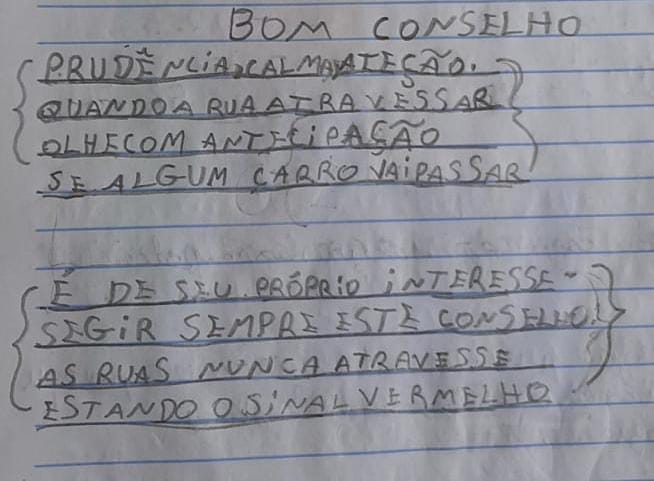 BOM CONSELHO
PRUDÊNCIA, CALMA, ATEÇÃO.
QUANDO A RUA ATRAVESSAR
OLHE COM ANTECIPAÇÃO
SE ALGUM CARRO VAI PASSAR
É DE SEU PRÓPRIO INTERESSE -
SEGIR SEMPRE ESTE CONSELHO.
AS RUAS NUNCA ATRAVESSE
ESTANDO O SINAL VERMELHO